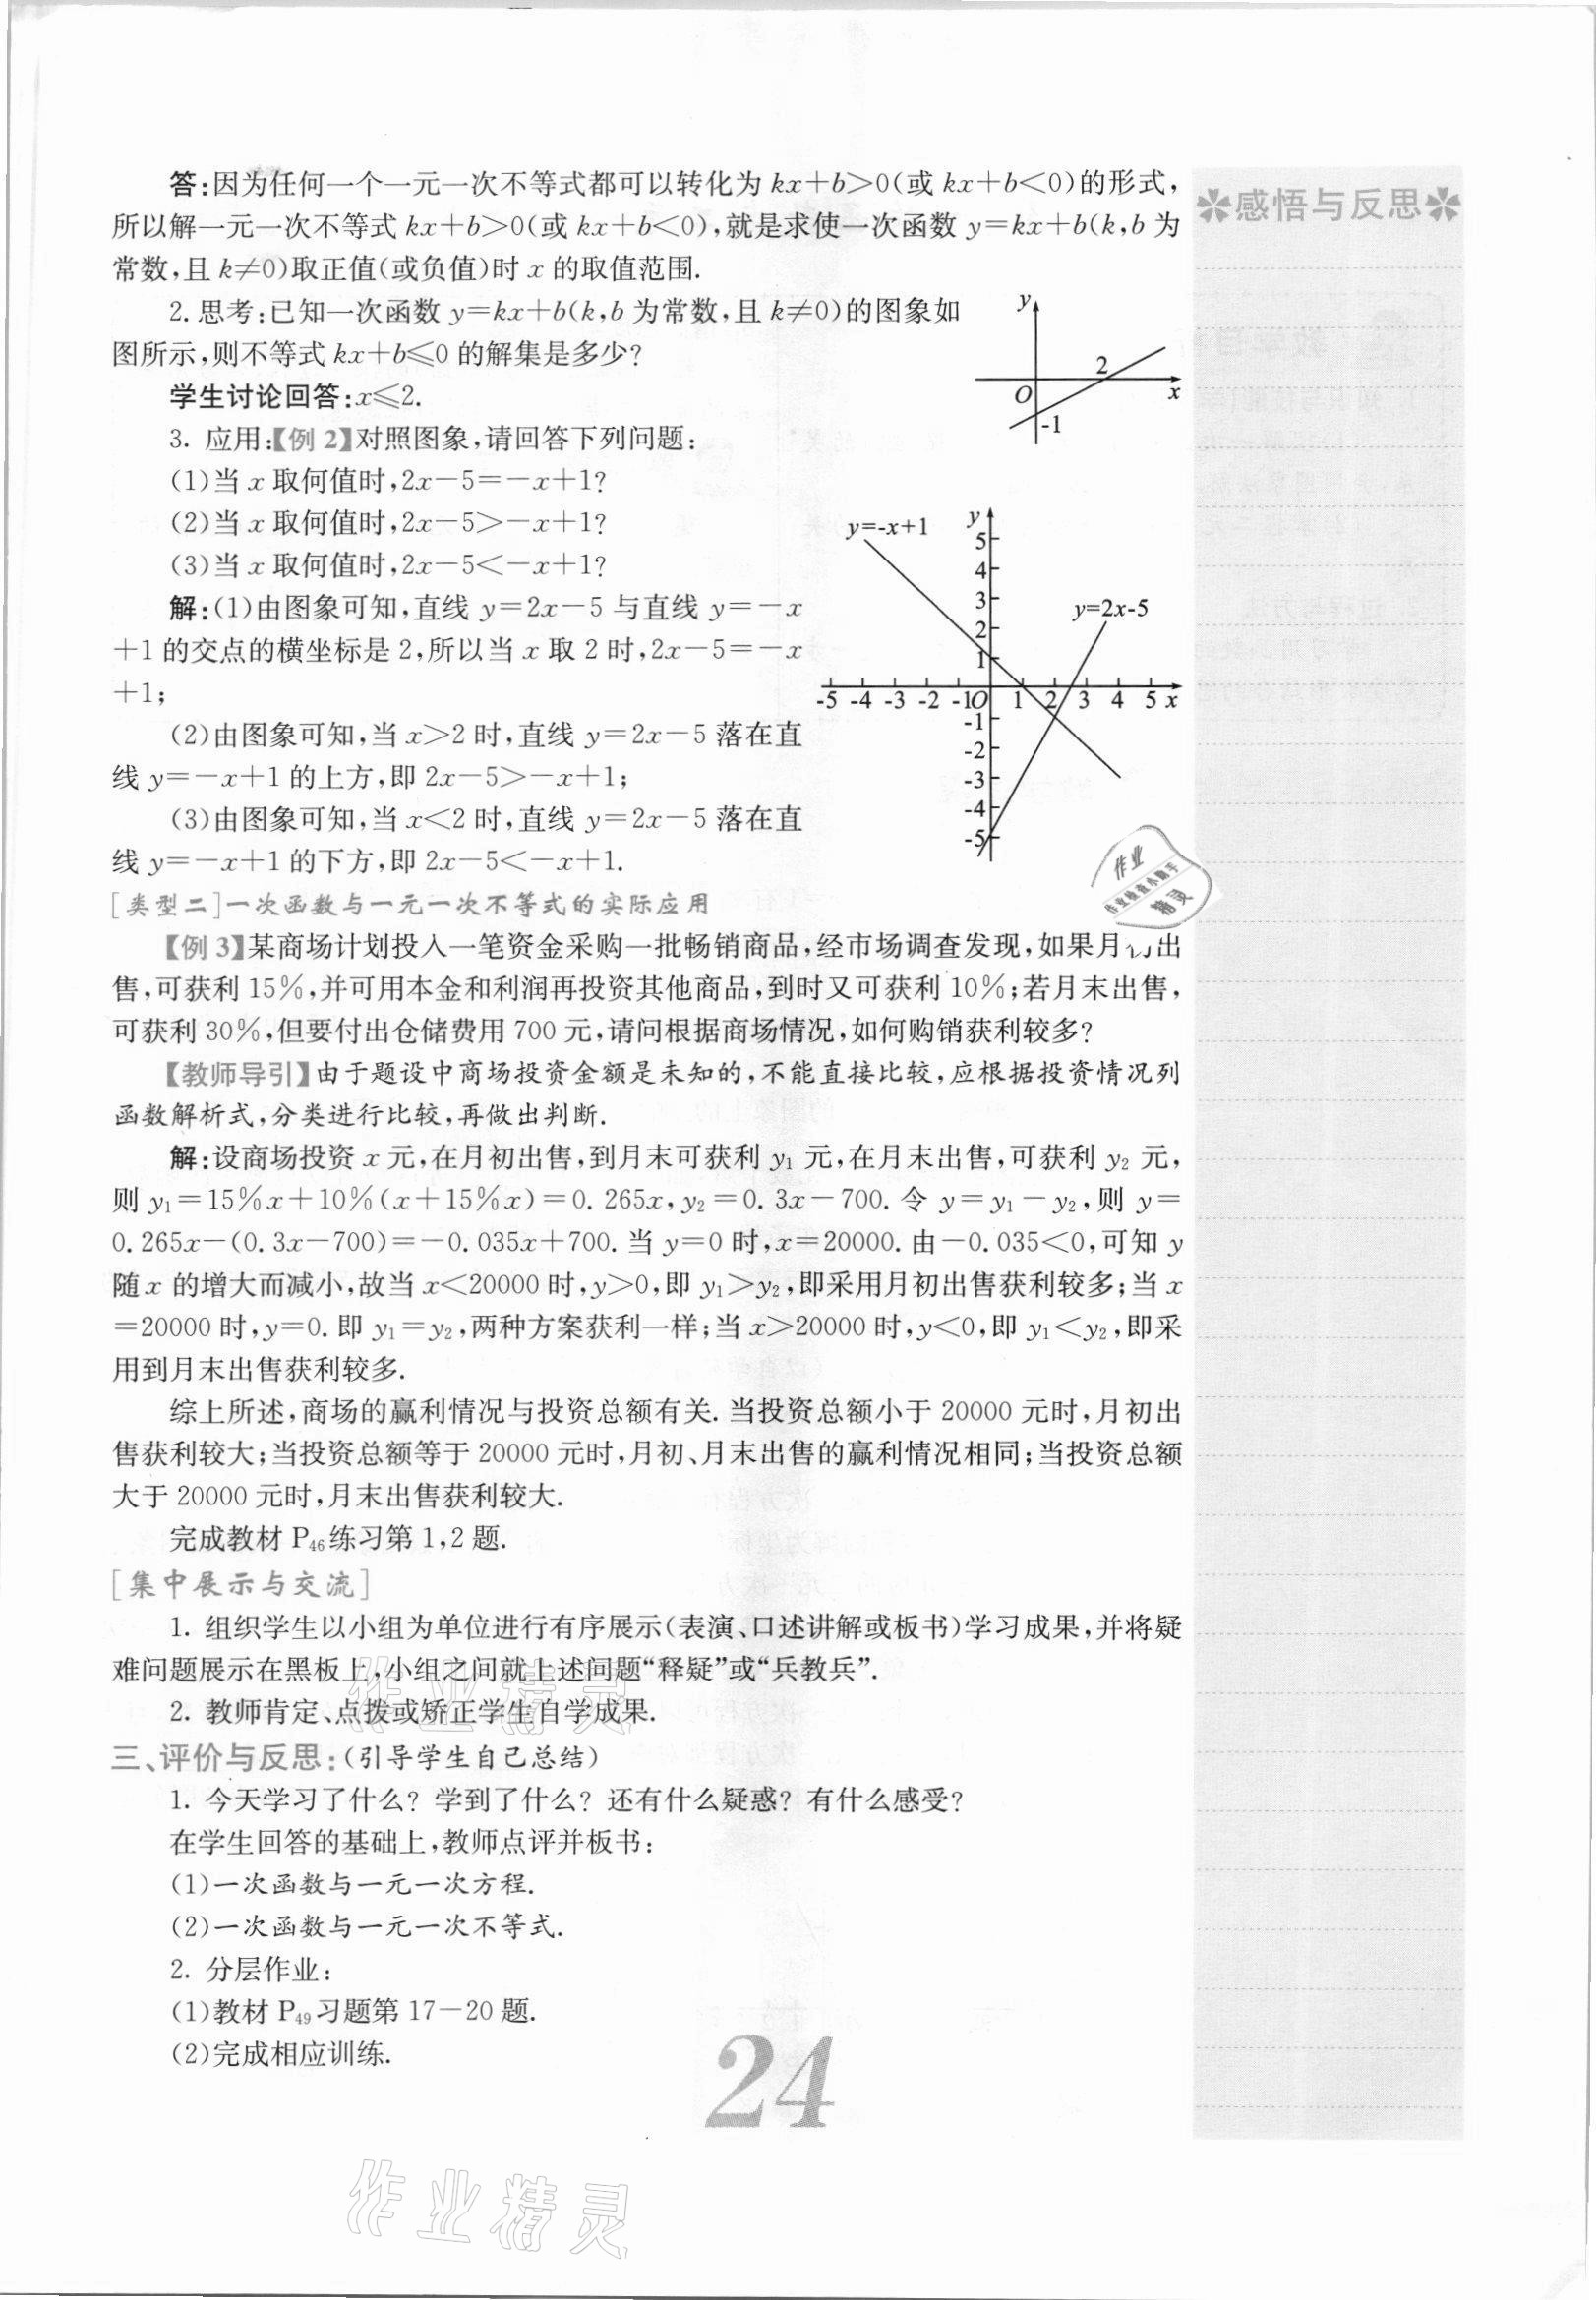 答:因为任何一个一元一次不等式都可以转化为 kx+b>0(或 kx+b<0)的形式,
所以解一元一次不等式 kx+b>0(或 kx+b<0),就是求使一次函数 y=kx+b(k,b 为
常数,且 k≠0)取正值(或负值)时 x 的取值范围.
✽感悟与反思✽
2. 思考:已知一次函数 y=kx+b(k,b 为常数,且 k≠0)的图象如
图所示,则不等式 kx+b≤0 的解集是多少?
y
2
O
x
-1
学生讨论回答:x≤2.
3. 应用:【例 2】对照图象,请回答下列问题:
(1)当 x 取何值时,2x-5=-x+1?
(2)当 x 取何值时,2x-5>-x+1?
(3)当 x 取何值时,2x-5<-x+1?
y=-x+1
y
5
4
3
2
1
y=2x-5
-5 -4 -3 -2 -1 O 1 2 3 4 5 x
-1
-2
-3
-4
-5
解:(1)由图象可知,直线 y=2x-5 与直线 y=-x
+1 的交点的横坐标是 2,所以当 x 取 2 时,2x-5=-x
+1;
(2)由图象可知,当 x>2 时,直线 y=2x-5 落在直
线 y=-x+1 的上方,即 2x-5>-x+1;
(3)由图象可知,当 x<2 时,直线 y=2x-5 落在直
线 y=-x+1 的下方,即 2x-5<-x+1.
作业
作业检查小助手
精灵
[类型二]一次函数与一元一次不等式的实际应用
【例 3】某商场计划投入一笔资金采购一批畅销商品,经市场调查发现,如果月初出
售,可获利 15%,并可用本金和利润再投资其他商品,到时又可获利 10%;若月末出售,
可获利 30%,但要付出仓储费用 700 元,请问根据商场情况,如何购销获利较多?
【教师导引】由于题设中商场投资金额是未知的,不能直接比较,应根据投资情况列
函数解析式,分类进行比较,再做出判断.
解:设商场投资 x 元,在月初出售,到月末可获利 y₁ 元,在月末出售,可获利 y₂ 元,
则 y₁=15%x+10%(x+15%x)=0.265x,y₂=0.3x-700. 令 y=y₁-y₂,则 y=
0.265x-(0.3x-700)=-0.035x+700. 当 y=0 时,x=20000. 由-0.035<0,可知 y
随 x 的增大而减小,故当 x<20000 时,y>0,即 y₁>y₂,即采用月初出售获利较多;当 x
=20000 时,y=0. 即 y₁=y₂,两种方案获利一样;当 x>20000 时,y<0,即 y₁<y₂,即采
用到月末出售获利较多.
综上所述,商场的赢利情况与投资总额有关. 当投资总额小于 20000 元时,月初出
售获利较大;当投资总额等于 20000 元时,月初、月末出售的赢利情况相同;当投资总额
大于 20000 元时,月末出售获利较大.
完成教材 P₄₆练习第 1,2 题.
[集中展示与交流]
1. 组织学生以小组为单位进行有序展示(表演、口述讲解或板书)学习成果,并将疑
难问题展示在黑板上,小组之间就上述问题“释疑”或“兵教兵”.
2. 教师肯定、点拨或矫正学生自学成果.
作业精灵
三、评价与反思:(引导学生自己总结)
1. 今天学习了什么? 学到了什么? 还有什么疑惑? 有什么感受?
在学生回答的基础上,教师点评并板书:
(1)一次函数与一元一次方程.
(2)一次函数与一元一次不等式.
2. 分层作业:
(1)教材 P₄₉习题第 17-20 题.
(2)完成相应训练.
24
作业精灵